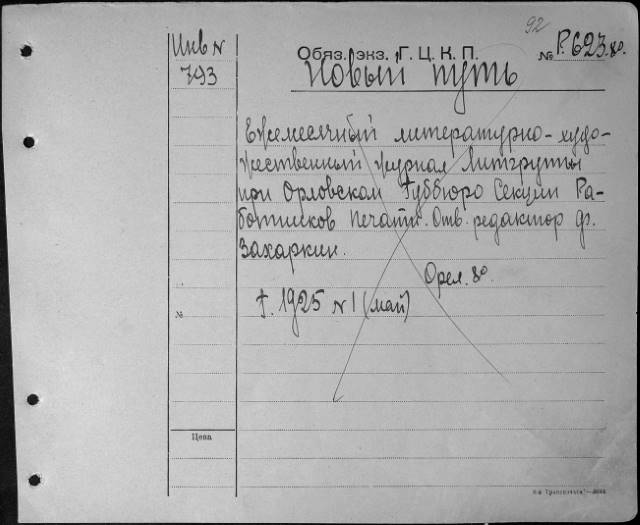 92
Инв N
793
Обяз. экз. Г. Ц. К. П.
№ Р.623.80.
Новый путь
Ежемесячный литературно-худо-
жественный журнал Литгруппы
при Орловском Губбюро Секции Ра-
ботников Печати. Отв. редактор Ф.
Захаркин.
Орел. 8о.
1925 N 1 (май)
№
Цена